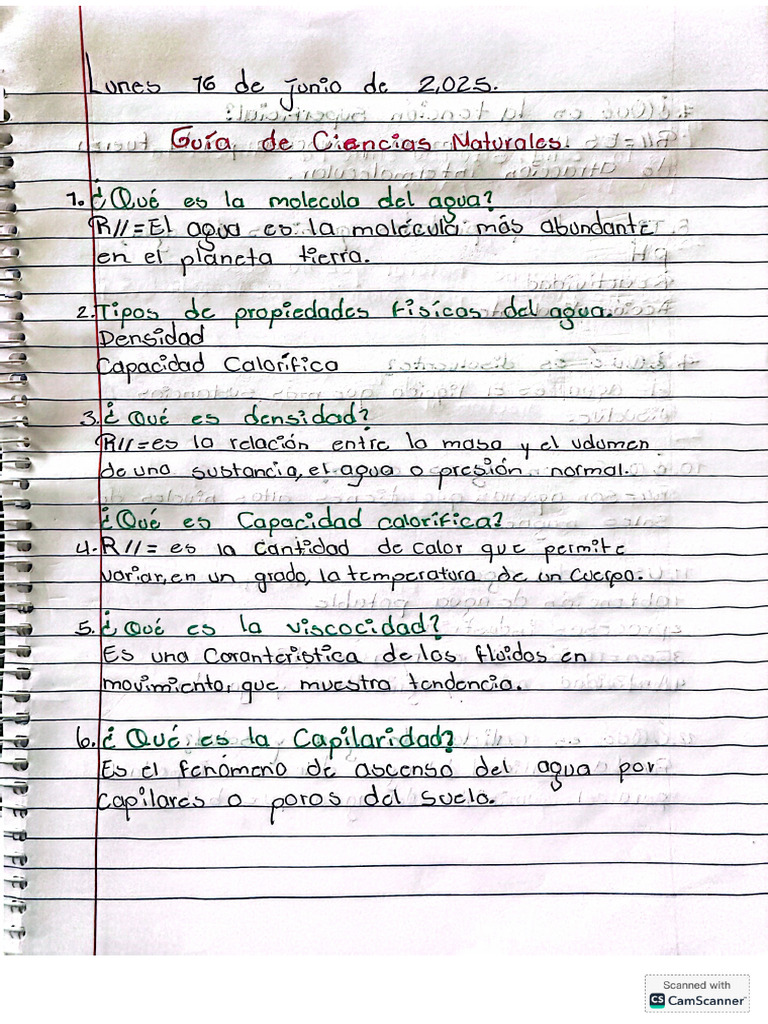 Lunes 16 de junio de 2,025.
Guía de Ciencias Naturales.
1. ¿Qué es la molecula del agua?
R//= El agua es la molécula más abundante
en el planeta tierra.
2. Tipos de propiedades fisicas del agua.
Densidad
Capacidad Calorífica
3. ¿Qué es densidad?
R//= es la relación entre la masa y el volumen
de una sustancia, el agua a presión normal.
¿Qué es Capacidad calorifica?
4. R//= es la cantidad de calor que permite
variar, en un grado, la temperatura de un cuerpo.
5. ¿Qué es la viscocidad?
Es una Caranteristica de los fluidos en
movimiento, que muestra tendencia.
6. ¿Qué es la Capilaridad?
Es el fenómeno de ascenso del agua por
capilares o poros del suelo.
Scanned with
CS CamScanner